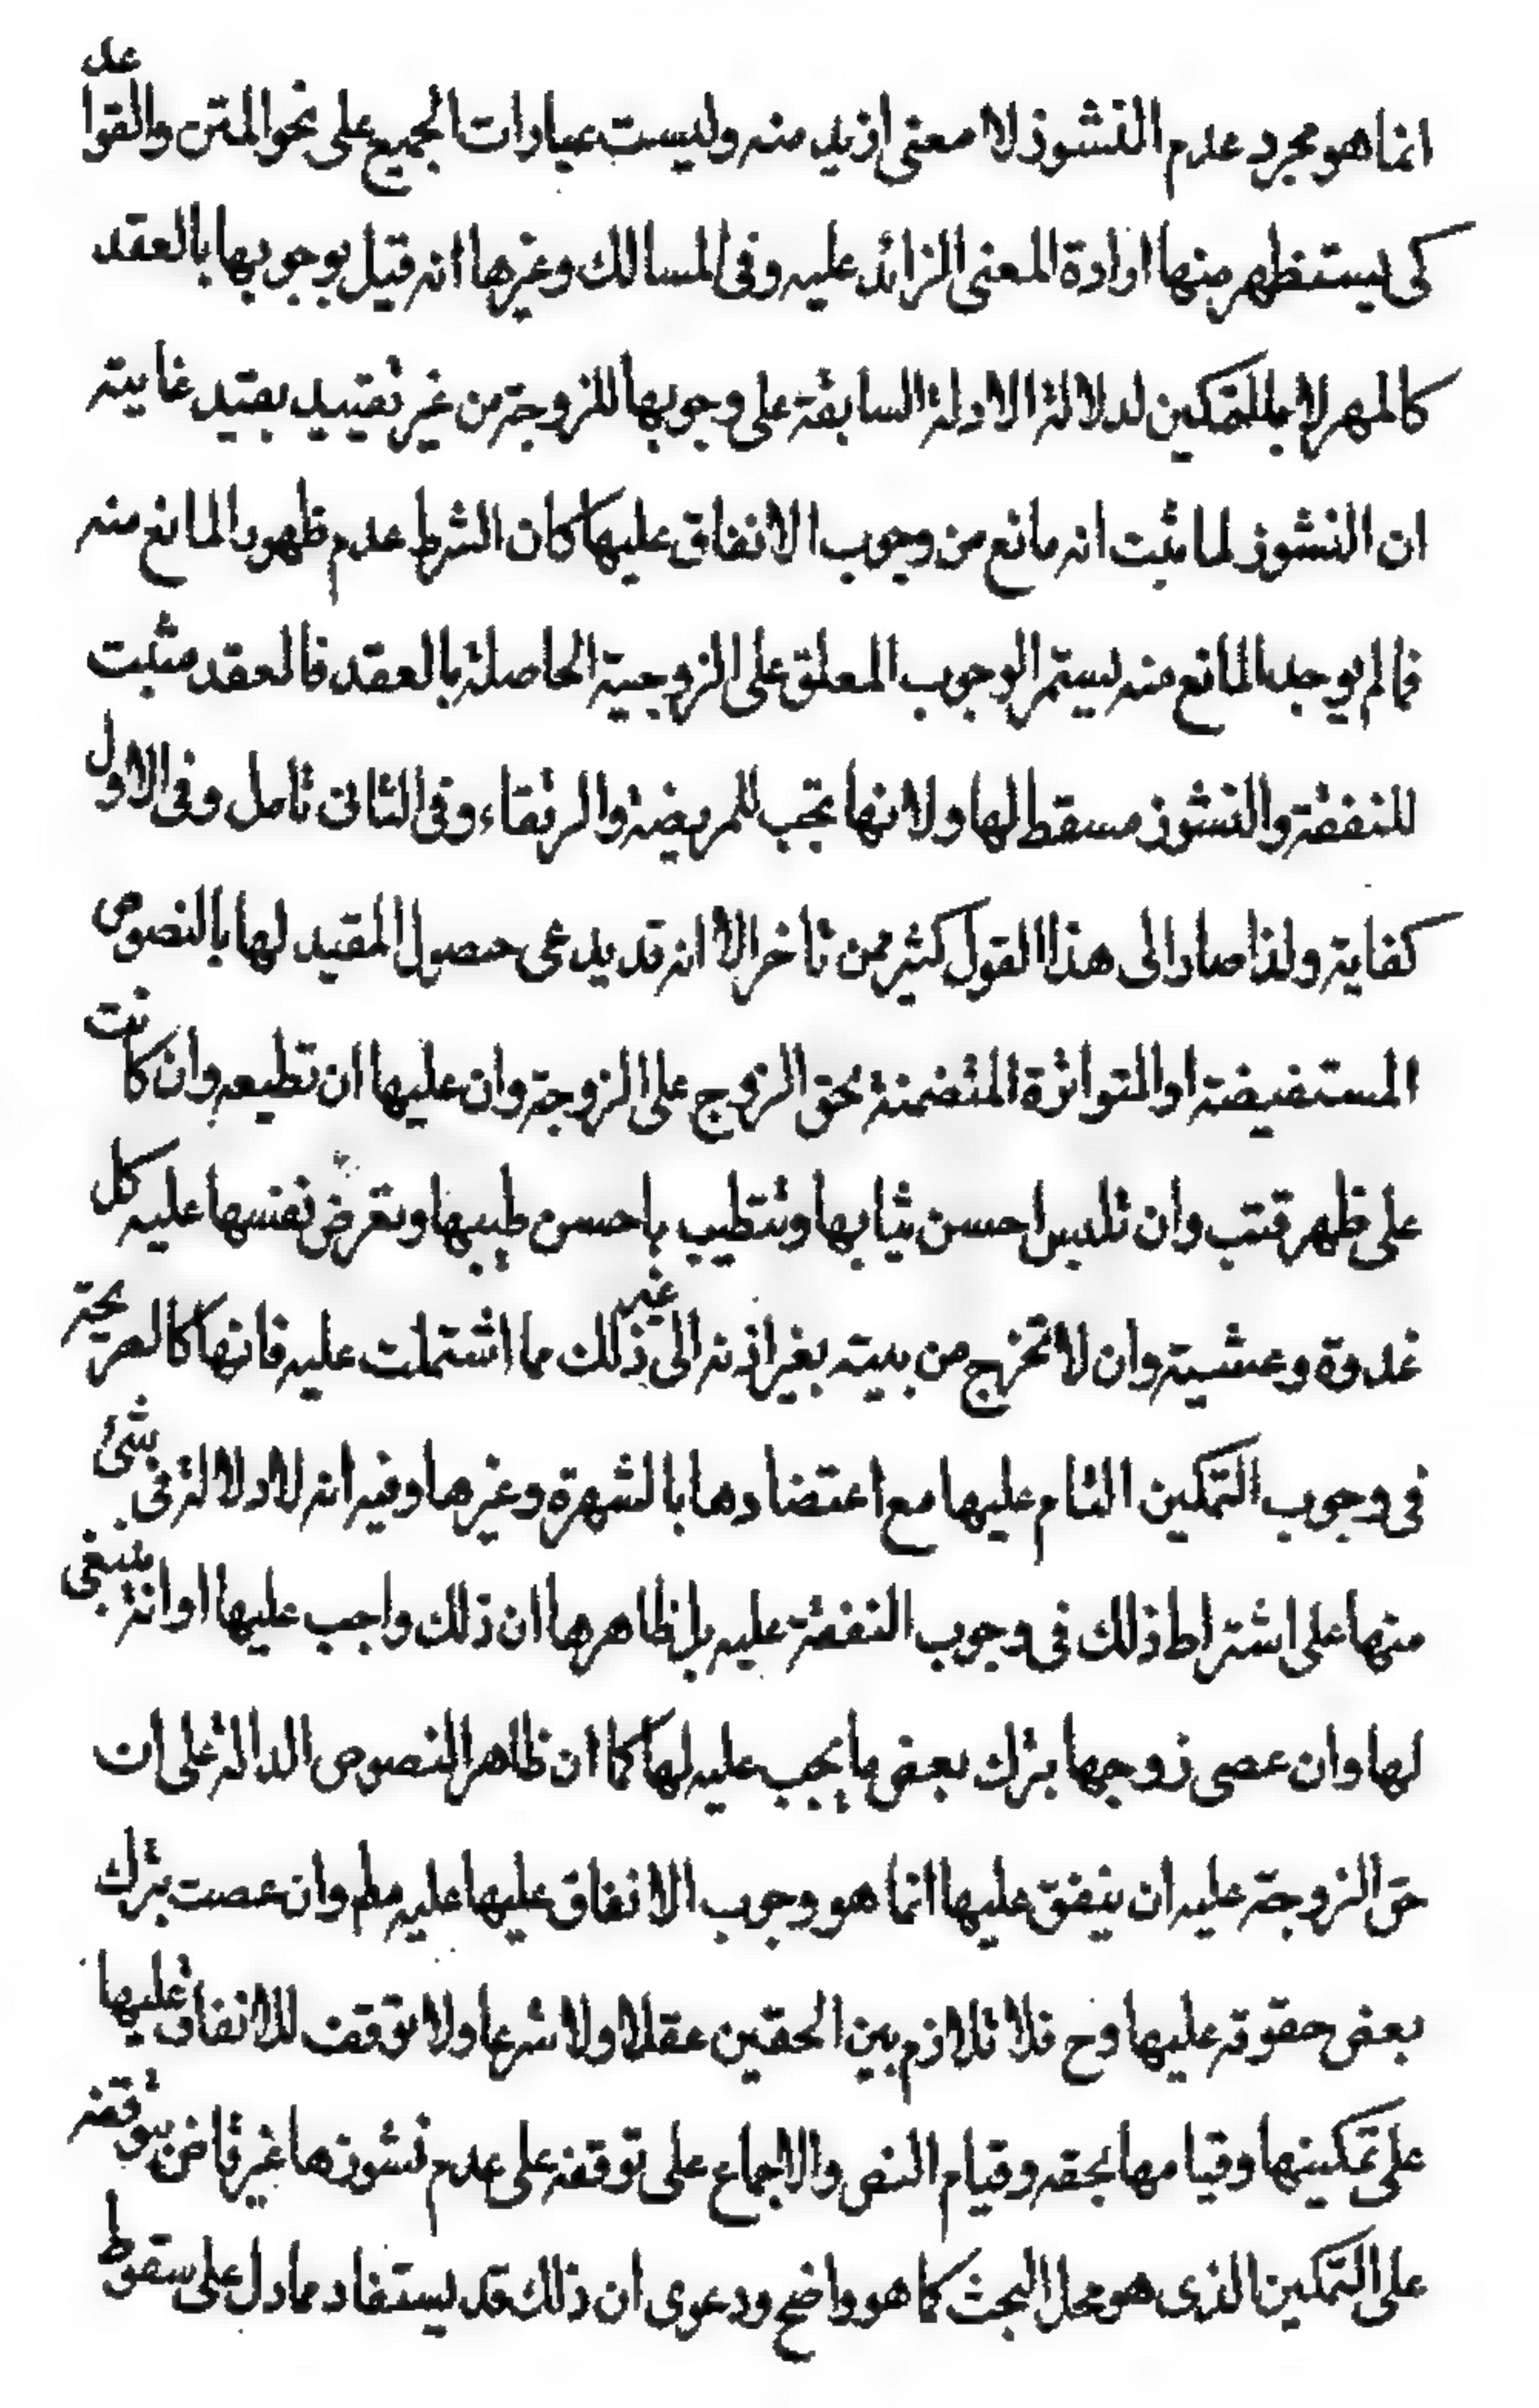 انما هو مجرد عدم النشوز لا معنى ازيد منه وليست عبارات الجميع على نحو المتن والقواعد
كى يستظهر منها ارادة المعنى الزائد عليه وفى المسالك وغيرها انه قيل بوجوبها بالعقد
كالمهر لا بالتمكين لدلالة الادلة السابقة على وجوبها للزوجة من غير تقييد بقيد غايته
ان النشوز لما ثبت انه مانع من وجوب الانفاق عليها كان الشرط عدم ظهور المانع منه
فما لم يوجد المانع منه يستمر الوجوب المعلق على الزوجية الحاصلة بالعقد فالعقد مثبت
للنفقة والنشوز مسقط لها ولانها تجب للمريضة والرتقاء وفى الثانى تامل وفى الاول
كفاية ولذا صار الى هذا القول كثير ممن تاخر الا انه قد يدعى حصول المقيد لها بالنصوص
المستفيضة او المتواترة المتضمنة بحق الزوج على الزوجة وان عليها ان تطيعه وان كانت
على ظهر قتب وان تلبس احسن ثيابها وتتطيب باحسن طيبها وتعرض نفسها عليه كل
غدوة وعشية وان لا تخرج من بيته بغير اذنه الى غير ذلك مما اشتملت عليه فانها كالصريحة
فى وجوب التمكين التام عليها مع اعتضادها بالشهرة وغيرها وفيه انه لا دلالة فى بشئ
منها على اشتراط ذلك فى وجوب النفقة عليه بل ظاهرها ان ذلك واجب عليها او انه ينبغى
لها وان عصى زوجها بترك بعض ما يجب عليه لها كما ان ظاهر النصوص الدالة على ان
حق الزوجة عليه ان ينفق عليها انما هو وجوب الانفاق عليها عليه مطم وان عصت بترك
بعض حقوقه عليها وح فلا تلازم بين الحقين عقلا ولا شرعا ولا توقف للانفاق عليها
على تمكينها وقيامها بحقه وقيام النص والاجماع على توقفه على عدم نشوزها غير قاض بتوقفه
على التمكين الذى هو محل البحث كما هو واضح ودعوى ان ذلك قد يستفاد مما دل على سقوط